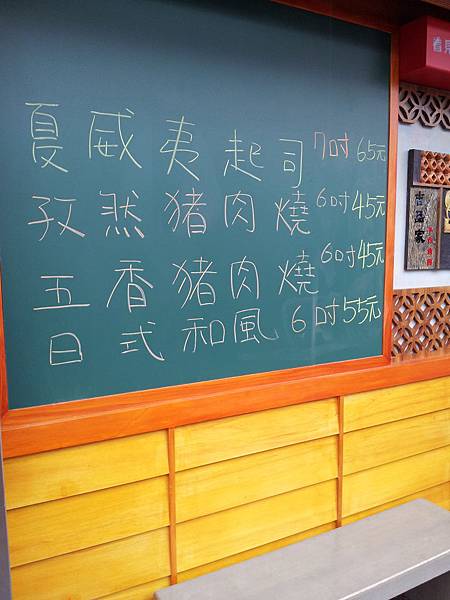 夏威夷起司 7吋 65元
孜然豬肉燒 6吋 45元
五香豬肉燒 6吋 45元
日式和風 6吋 55元
看見